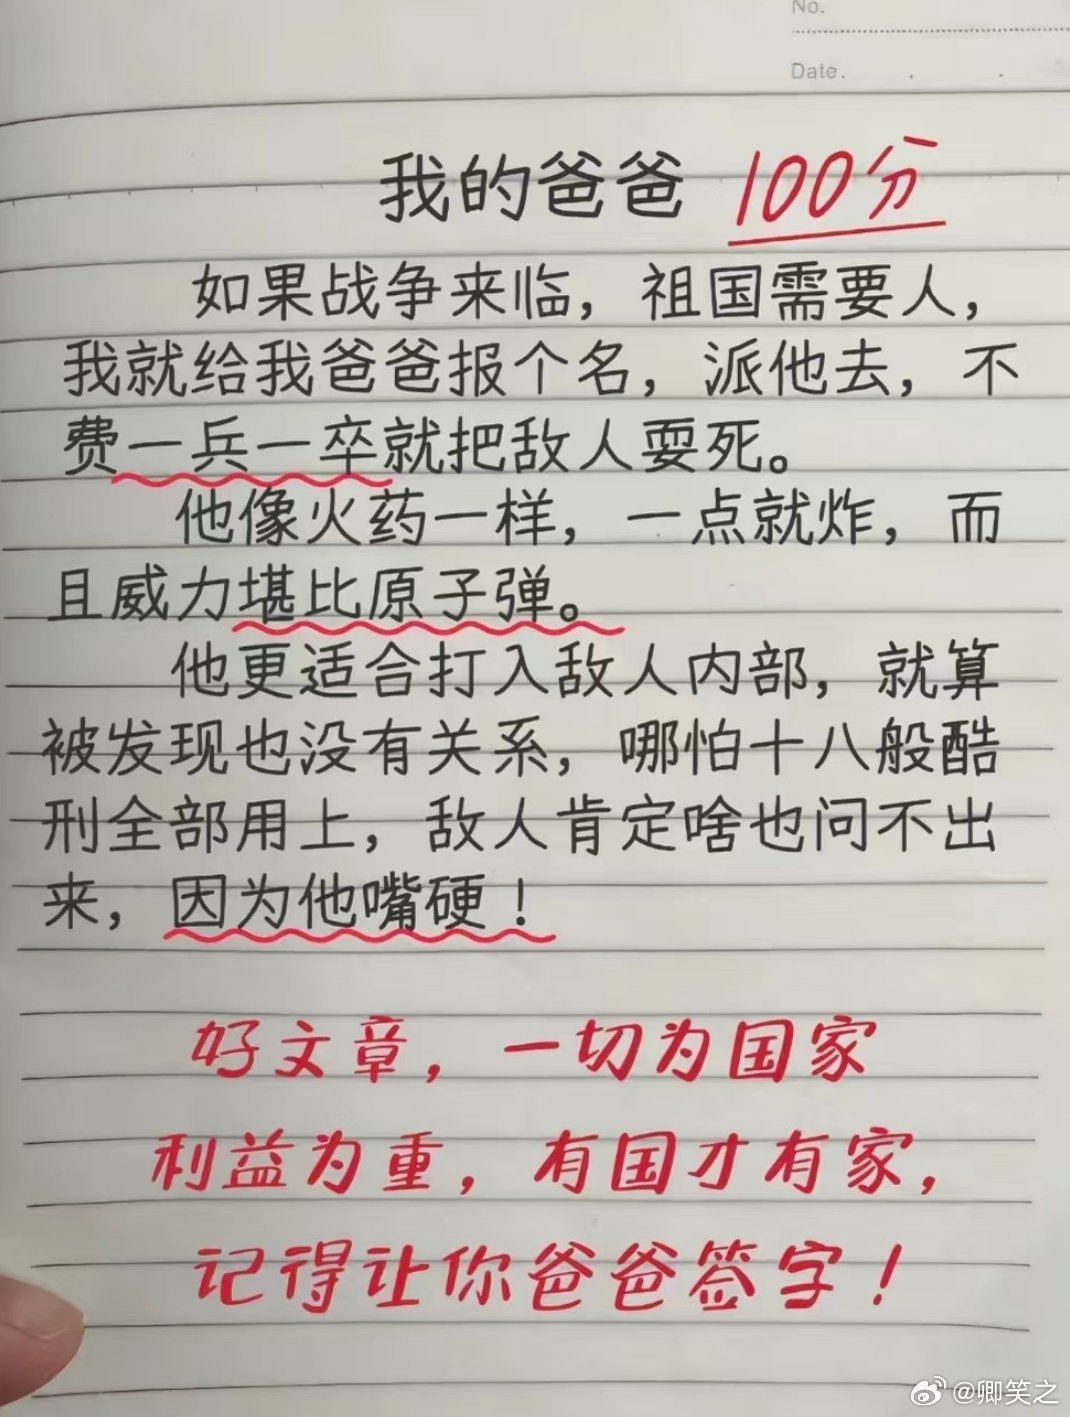 No.
Date.
我的爸爸 100分
如果战争来临，祖国需要人，
我就给我爸爸报个名，派他去，不
费一兵一卒就把敌人耍死。
他像火药一样，一点就炸，而
且威力堪比原子弹。
他更适合打入敌人内部，就算
被发现也没有关系，哪怕十八般酷
刑全部用上，敌人肯定啥也问不出
来，因为他嘴硬！
好文章，一切为国家
利益为重，有国才有家，
记得让你爸爸签字！
@卿笑之